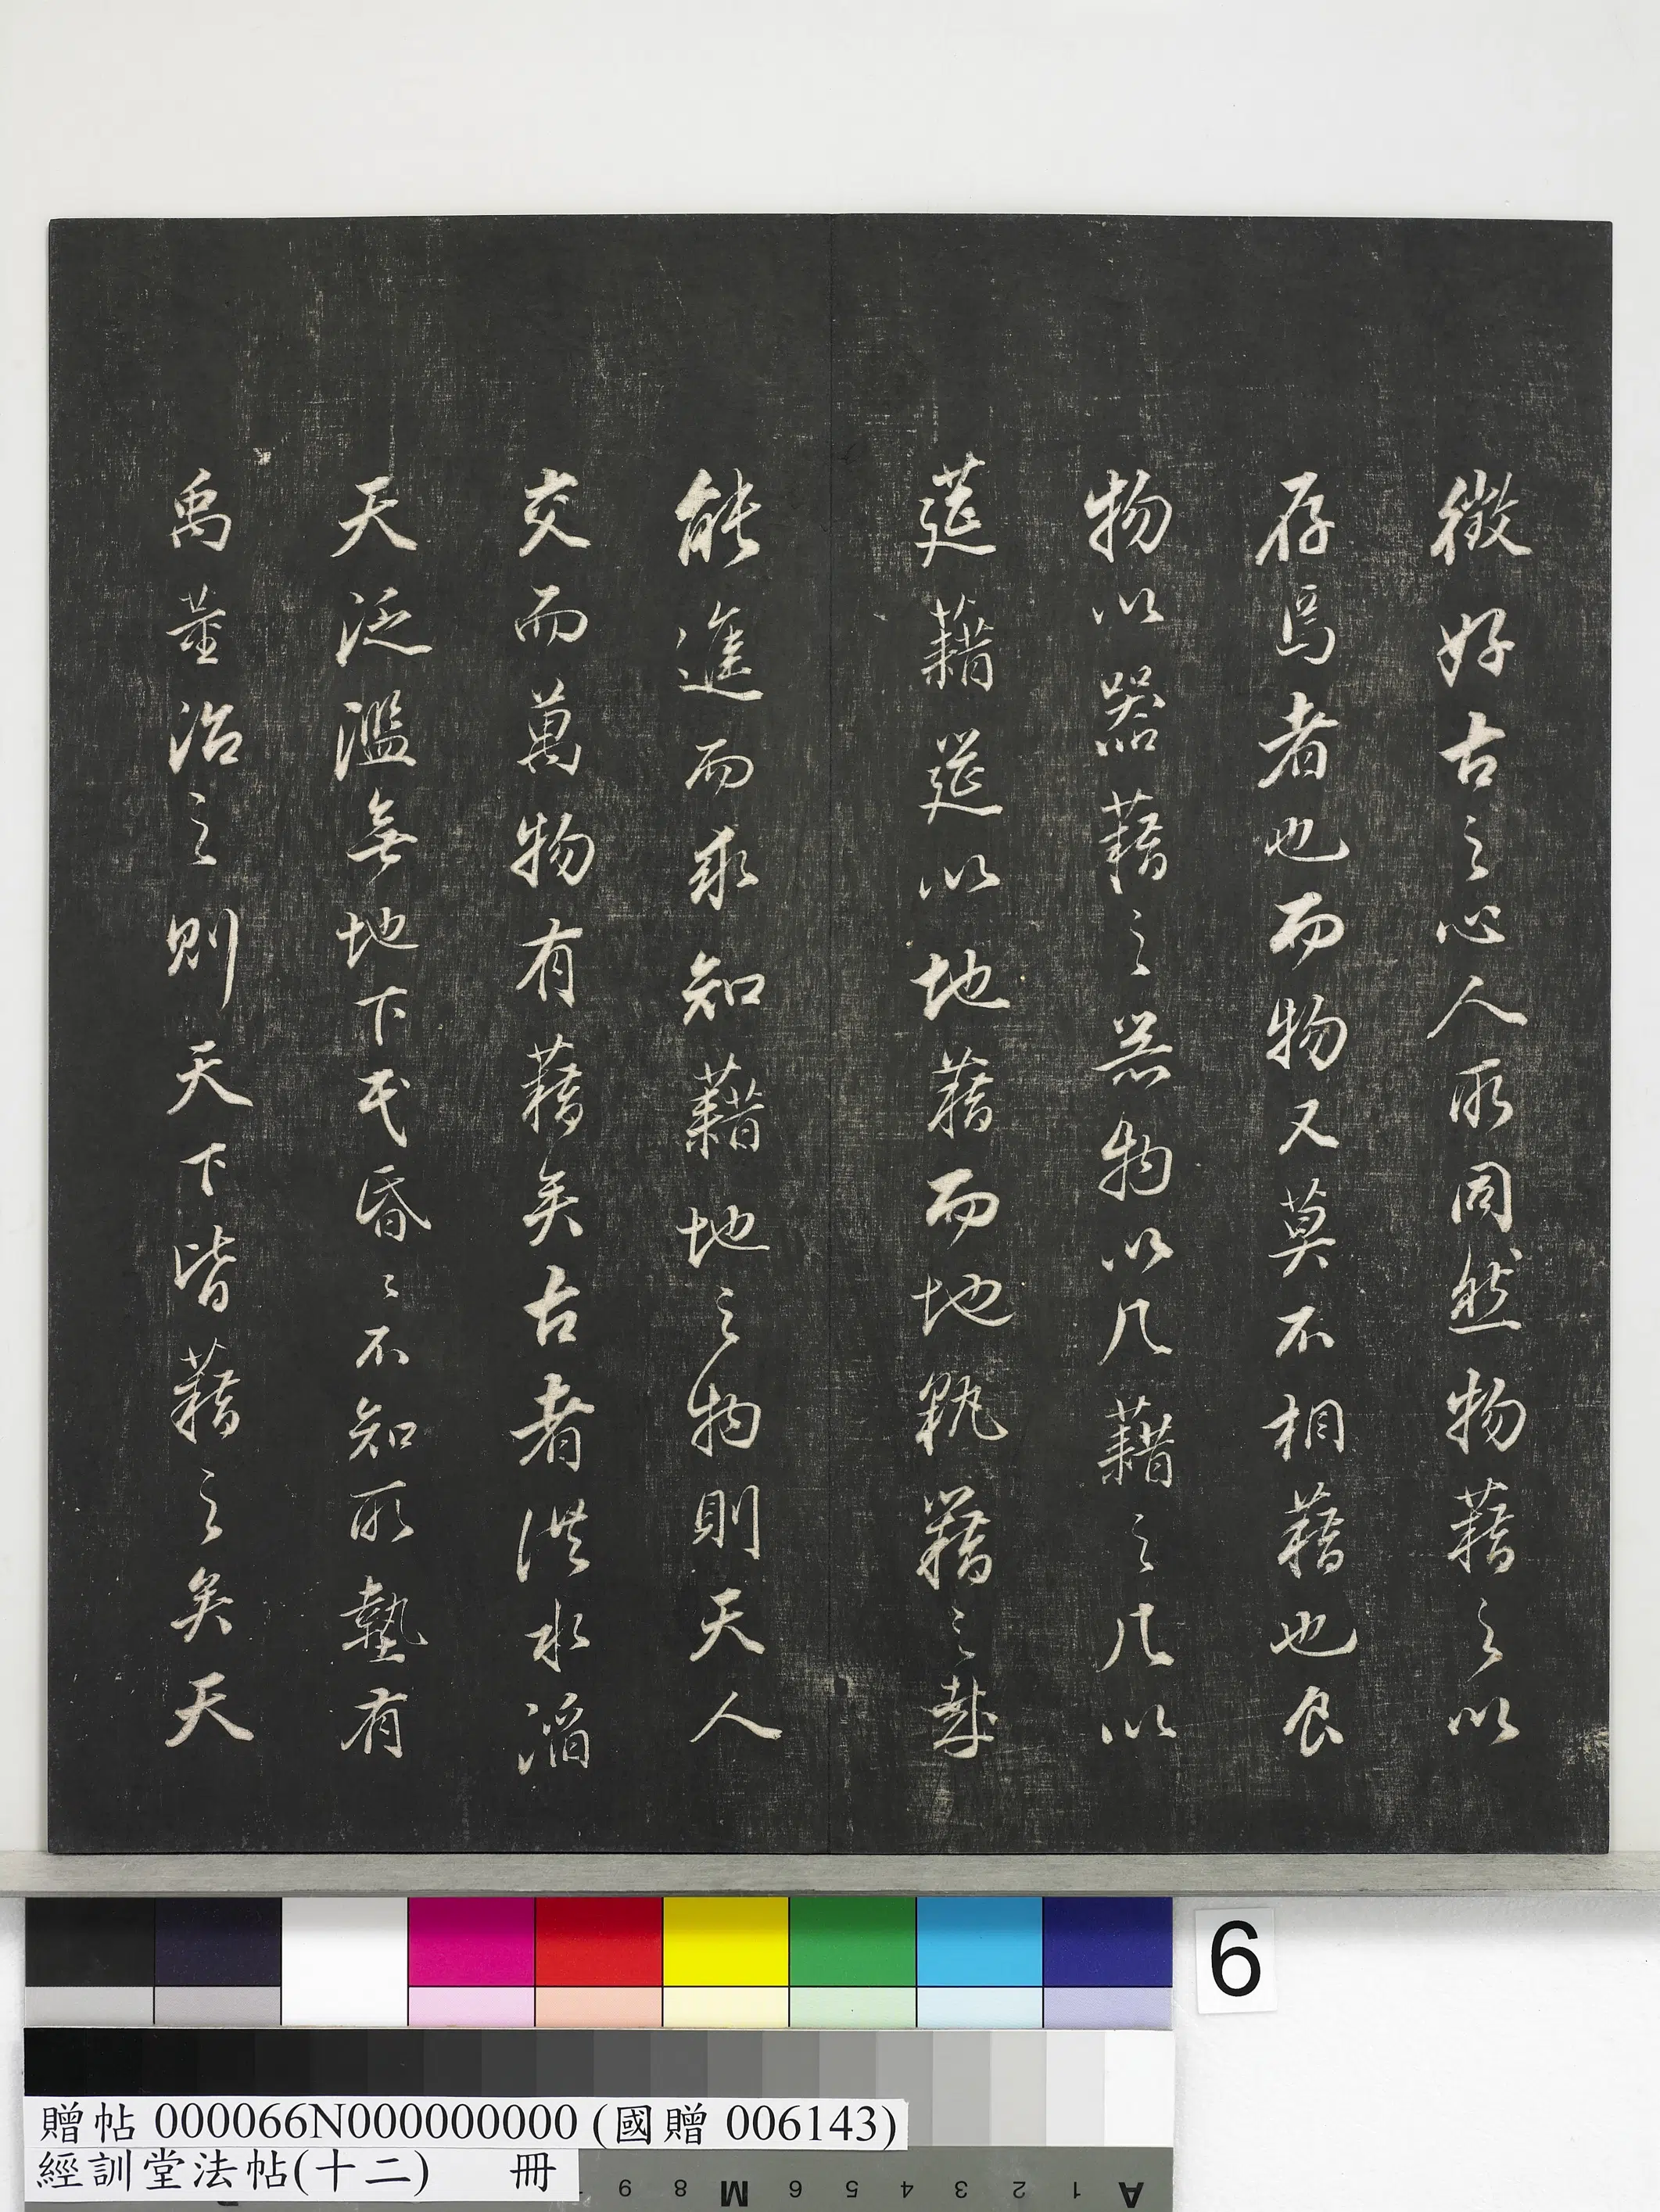 徵好古之心人所同然物藉之以
存焉者也而物又莫不相藉也食
物以器藉之器物以几藉之几以
筵藉筵以地藉而地孰藉之哉
能進而求知藉地之物則天人
交而萬物有藉矣古者洪水滔
天泛濫無地下民昏〻不知所墊有
禹董治之則天下皆藉之矣天
6
贈帖 000066N000000000 (國贈 006143)
經訓堂法帖(十二) 冊
A 1 2 3 4 5 6 M 8 9